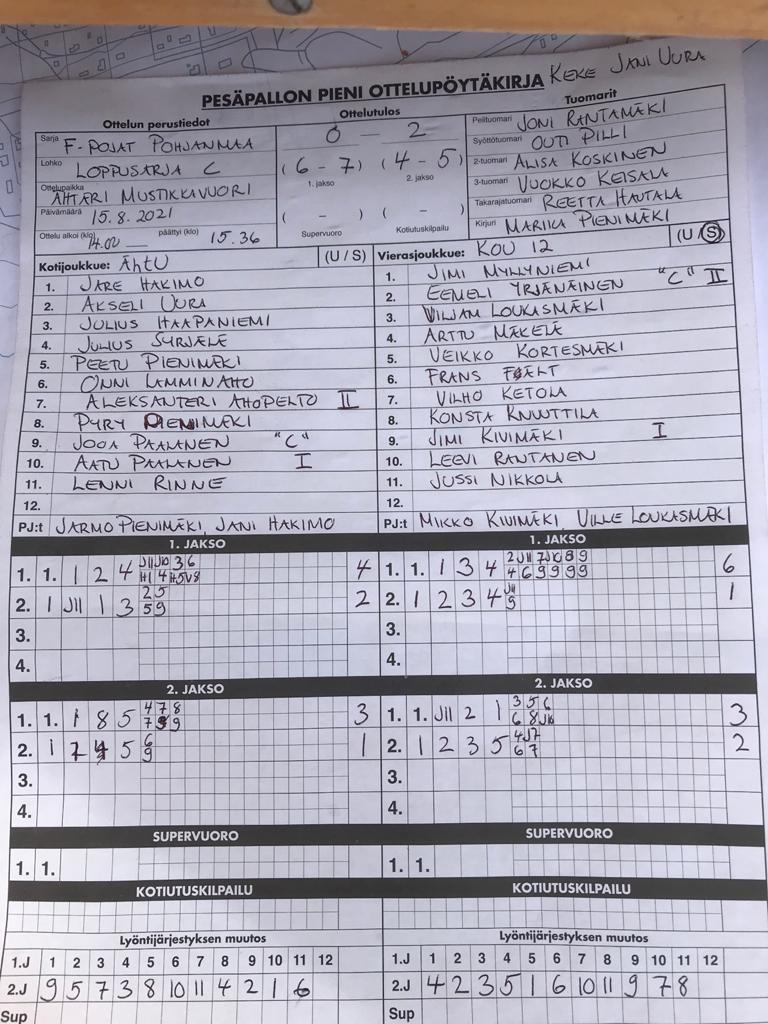 KEKE JANI UURA
PESÄPALLON PIENI OTTELUPÖYTÄKIRJA
Ottelun perustiedot
Sarja F-POJAT POHJANMAA
Lohko LOPPUSARJA C
Ottelupaikka ÄHTÄRI MUSTIKKAVUORI
Päivämäärä 15.8.2021
Ottelu alkoi (klo) 14.00 päättyi (klo) 15.36
Ottelutulos
0 – 2
(6 – 7) (4 – 5)
1. jakso 2. jakso
( – ) ( – )
Supervuoro Kotiutuskilpailu
Tuomarit
Pelituomari JONI RANTAMÄKI
Syöttötuomari OUTI PILLI
2-tuomari ALISA KOSKINEN
3-tuomari VUOKKO KEISALA
Takarajatuomari REETTA HAUTALA
Kirjuri MARIKA PIENIMÄKI
Kotijoukkue: ÄHTU (U / S)
1. JARE HAKIMO
2. AKSELI UURA
3. JULIUS HAAPANIEMI
4. JULIUS SYRJÄLÄ
5. PEETU PIENIMÄKI
6. ONNI LAMMINAHO
7. ALEKSANTERI AHOPELTO II
8. PYRY PIENIMÄKI
9. JOOA PAALANEN "C"
10. AATU PAALANEN I
11. LENNI RINNE
12.
PJ:t JARMO PIENIMÄKI, JANI HAKIMO
Vierasjoukkue: KOU 12 (U / S)
1. JIMI MYLLYNIEMI
2. EEMELI YRJÄNÄINEN "C" II
3. VILJAM LOUKASMÄKI
4. ARTTU MÄKELÄ
5. VEIKKO KORTESMÄKI
6. FRANS FÄLT
7. VILHO KETOLA
8. KONSTA KNUUTTILA
9. JIMI KIVIMÄKI I
10. LEEVI RANTANEN
11. JUSSI NIKKOLA
12.
PJ:t MIKKO KIVIMÄKI, VILLE LOUKASMÄKI
1. JAKSO
1. 1. 1 2 4 4
2. 1 J11 1 3 25 59 2
3.
4.
1. JAKSO
1. 1. 1 3 4 6
2. 1 2 3 4 J11 9 1
3.
4.
2. JAKSO
1. 1. 1 8 5 478 3
2. 1 7 4 5 6 9 1
3.
4.
2. JAKSO
1. 1. J11 2 1 356 6 8 J10 3
2. 1 2 3 5 4J7 67 2
3.
4.
SUPERVUORO
1. 1.
SUPERVUORO
1. 1.
KOTIUTUSKILPAILU
KOTIUTUSKILPAILU
Lyöntijärjestyksen muutos
1.J 1 2 3 4 5 6 7 8 9 10 11 12
2.J 9 5 7 3 8 10 11 4 2 1 6
Sup
Lyöntijärjestyksen muutos
1.J 1 2 3 4 5 6 7 8 9 10 11 12
2.J 4 2 3 5 1 6 10 11 9 7 8
Sup